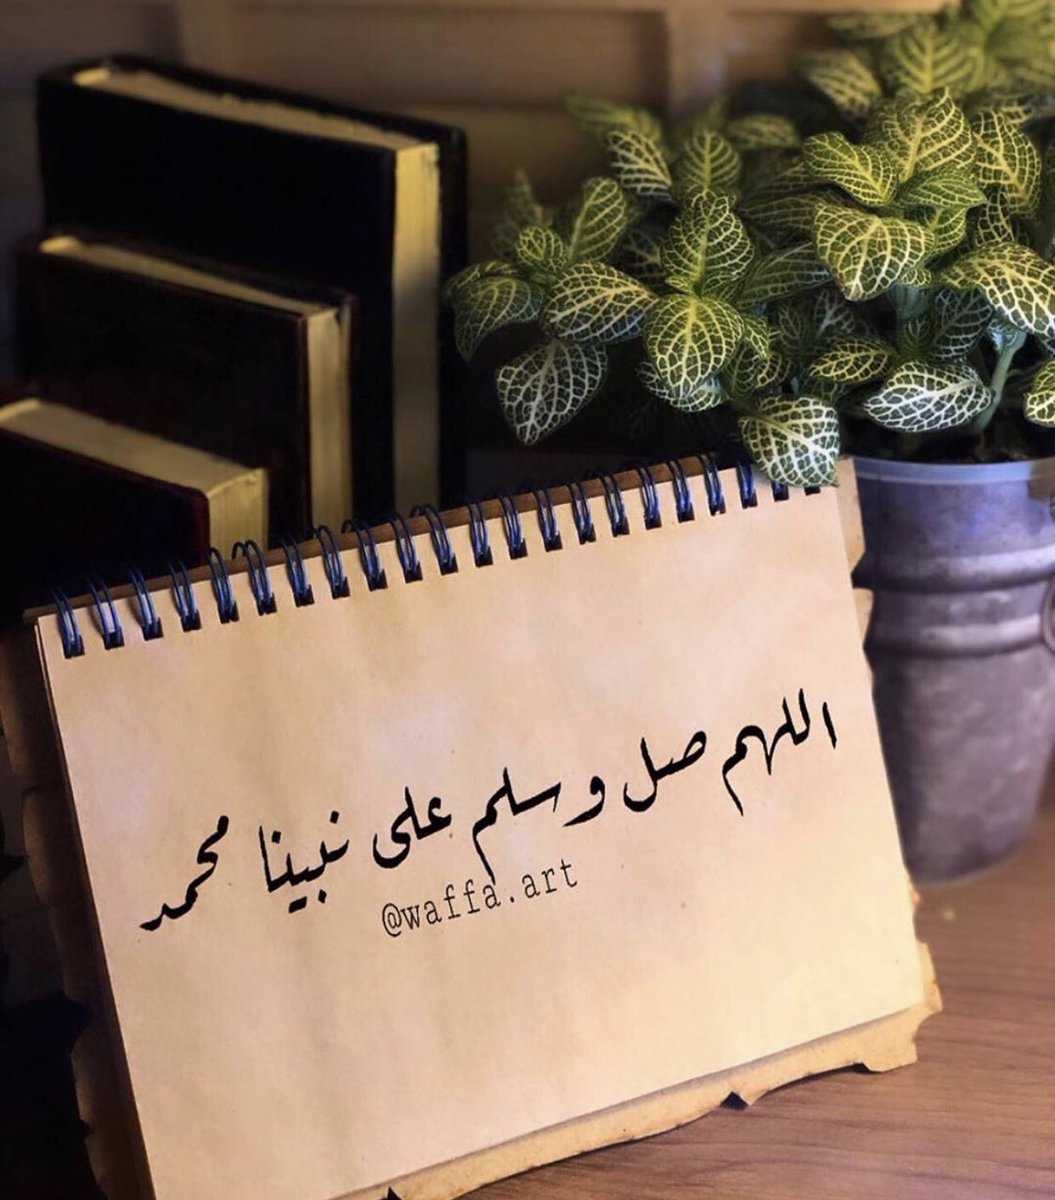 اللهم صل وسلم على نبينا محمد
@waffa.art